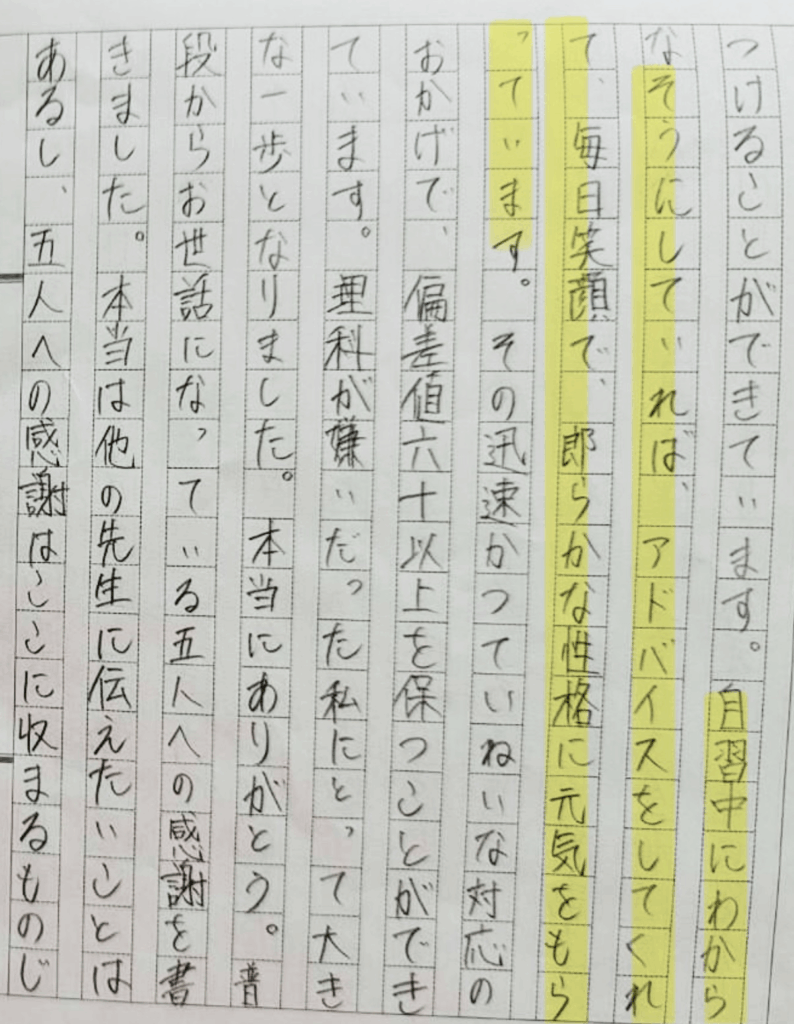 つけることができています。自習中にわから
なそうにしていれば、アドバイスをしてくれ
て、毎日笑顔で、郎らかな性格に元気をもら
っています。その迅速かつていねいな対応の
おかげで、偏差値六十以上を保つことができ
ています。理科が嫌いだった私にとって大き
な一歩となりました。本当にありがとう。普
段からお世話になっている五人への感謝を書
きました。本当は他の先生に伝えたいことは
あるし、五人への感謝はここに収まるものじ